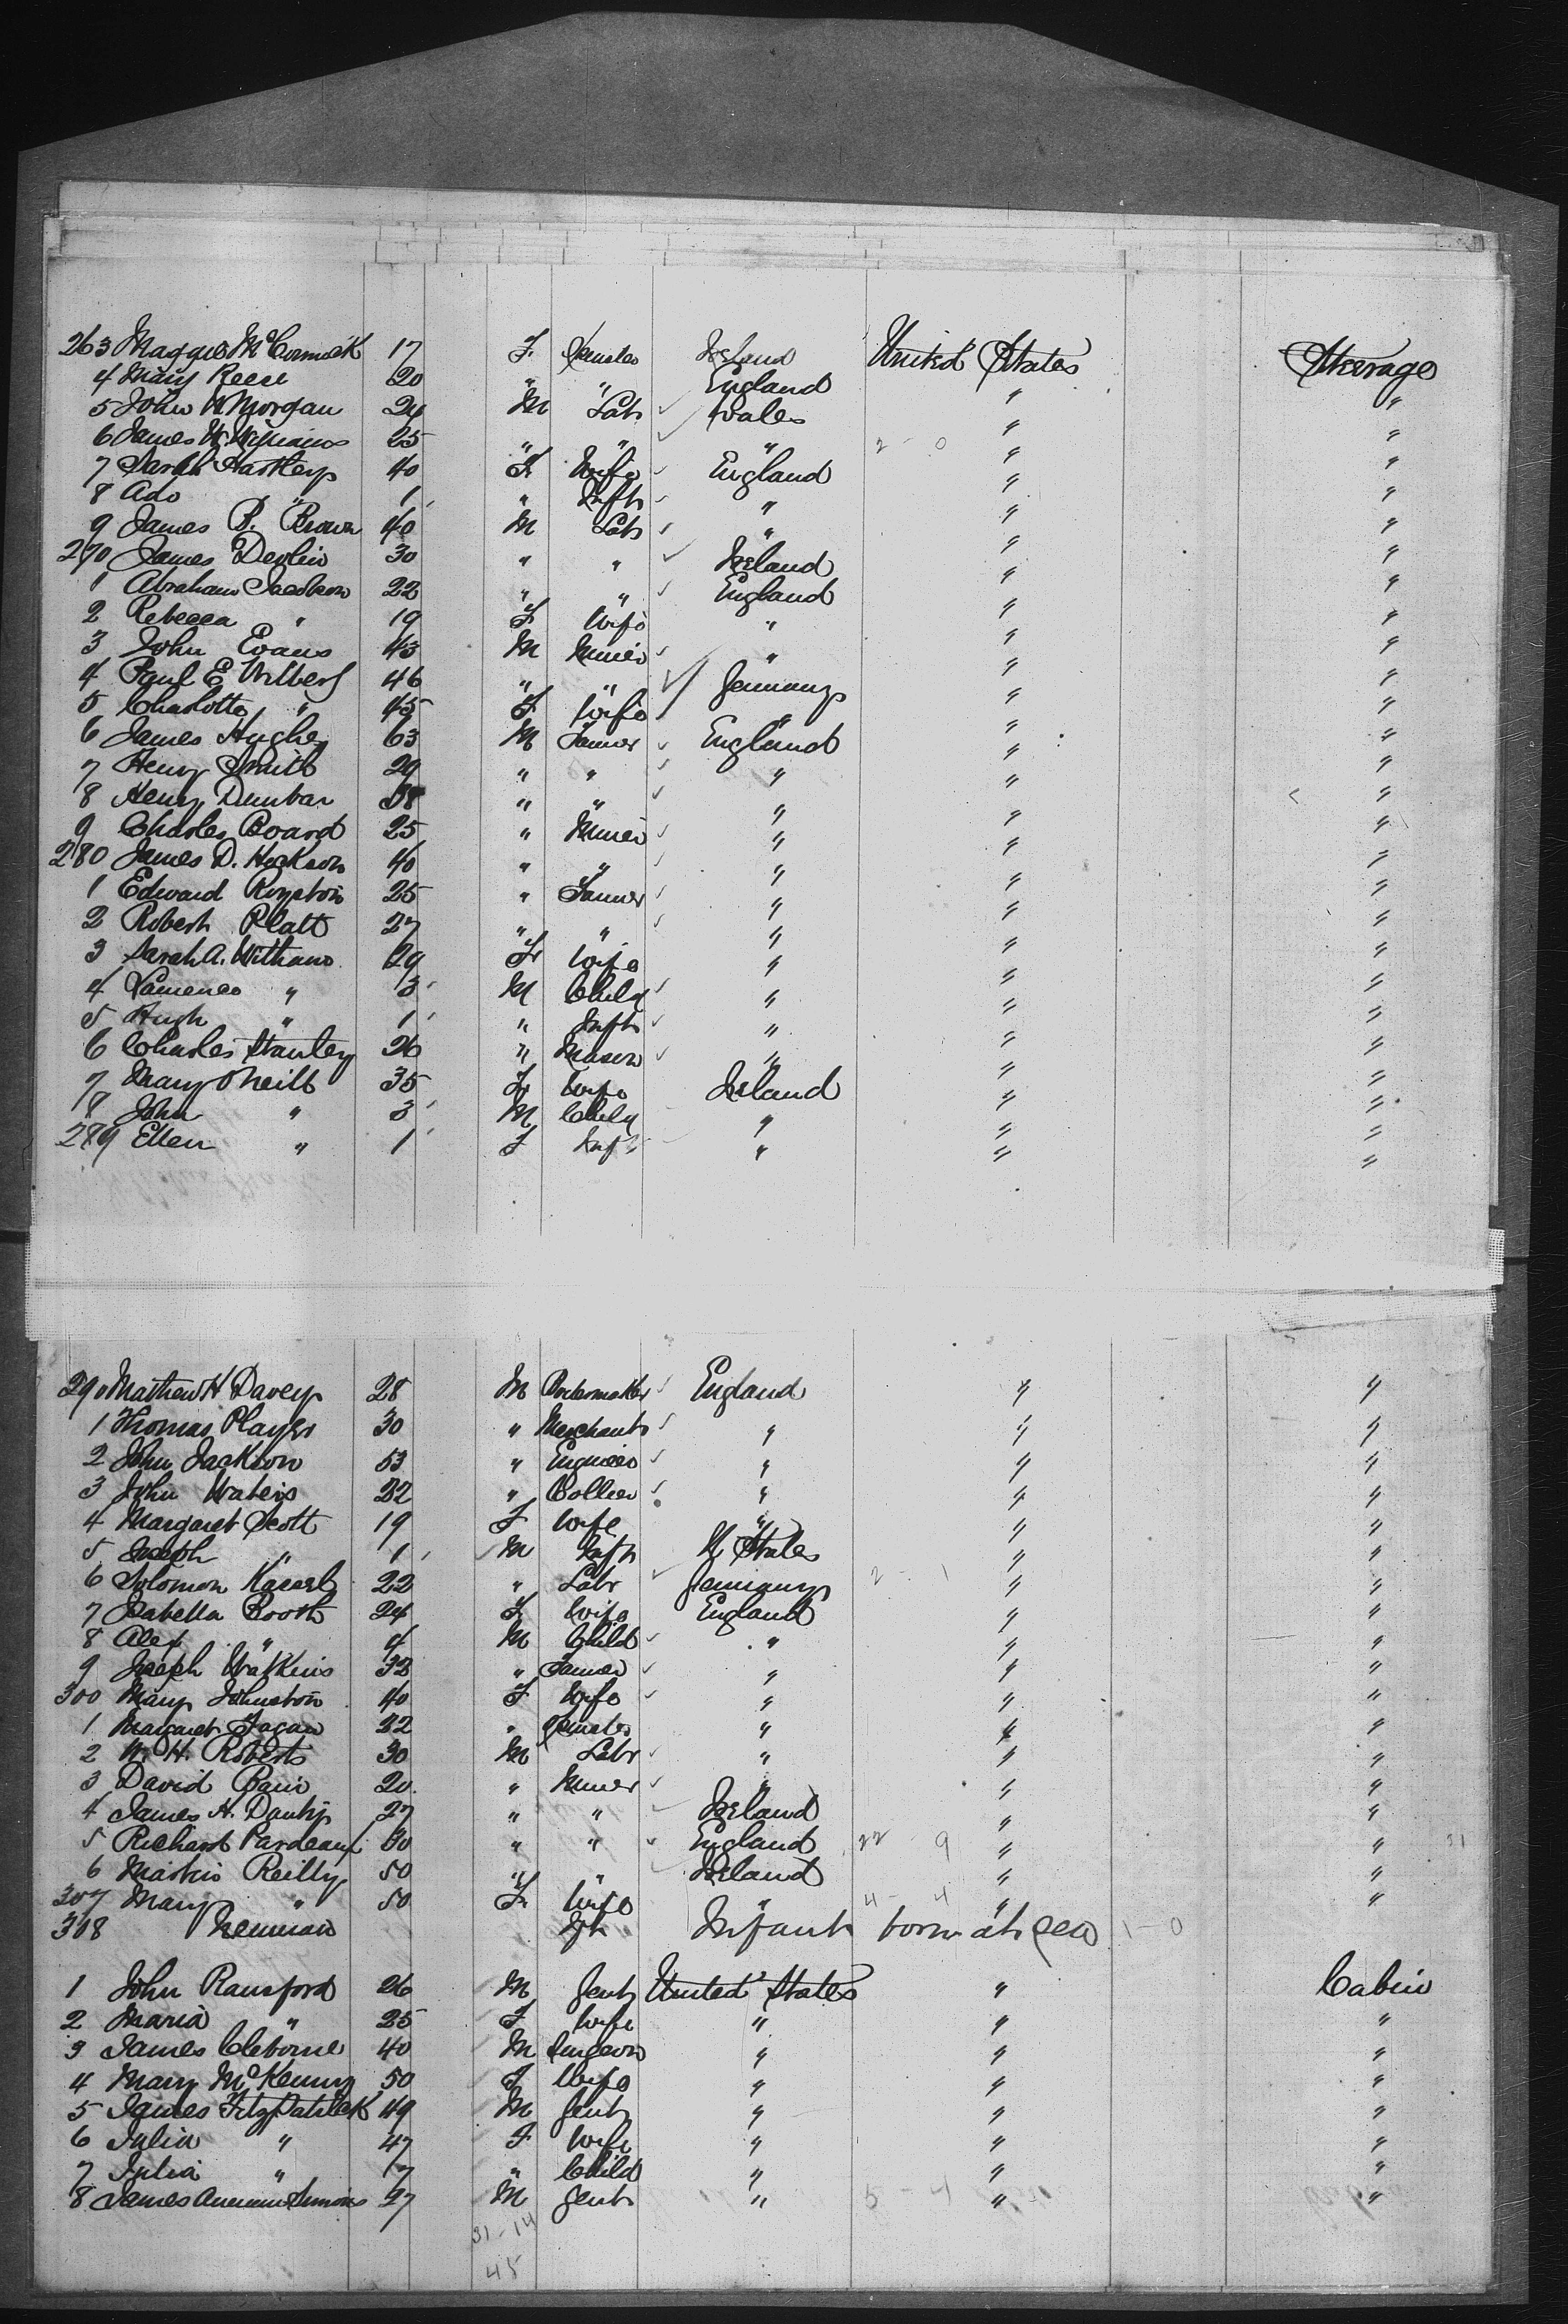 263 Maggie McCormick 17 F. Females Ireland United States Steerage
4 Mary Reese 20 " " England " "
5 John W Morgan 24 M Labr Wales " "
6 James W. Williams 25 " " " 2 - 0 " "
7 Sarah Hartley 40 F. Wife England " "
8 Ado " 1 " Inft " " "
9 James B. Brown 40 M Labr " " "
270 James Devlin 30 " " Ireland " "
1 Abraham Jacobson 22 " " England " "
2 Rebecca " 19 F Wife " " "
3 John Evans 43 M Miner " " "
4 Paul E 46 " " Germany " "
5 Charlotte " 45 F Wife " " "
6 James Hughes 63 M Farmer England " "
7 Henry Smith 29 " " " " "
8 Henry Dunbar 38 " " " " "
9 Charles Board 25 " Miner " " "
280 James D. 40 " " " " "
1 Edward Royston 25 " Farmer " " "
2 Robert Platt 27 " " " " "
3 Sarah A. 29 F Wife " " "
4 " 3 M Child " " "
5 Hugh " 1 " Inft " " "
6 Charles Stanley 26 " Mason " " "
7 Mary O'Neill 35 F. Wife Ireland " "
8 John " 3 M Child " " "
289 Ellen " 1 F Inft " " "
290 Mathew H Davey 28 M Boilermaker England " "
1 Thomas Player 30 " Merchant " " "
2 John Jackson 53 " Engineer " " "
3 John Waters 22 " Collier " " "
4 Margaret Scott 19 F Wife " " "
5 Joseph " 1 M Inft U States " "
6 Solomon 22 " Labr Germany 2 - 1 " "
7 Isabella Booth 24 F. Wife England " "
8 Alex " 4 M Child " " "
9 Joseph Watkins 32 " Farmer " " "
300 Mary Johnston 40 F Wife " " "
1 Margaret Fagan 22 " Females " " "
2 W. H. Roberts 30 M Labr " " "
3 David Bain 20 " Miner " " "
4 James A. 27 " " Ireland " "
5 Richard 30 " " England 22 - 9 " " 31
6 Martin Reilly 50 " " Ireland " "
307 Mary " 50 F. Wife " 4 - 4 " "
308 Newman Inft Infant born at sea 1 - 0
1 John Ransford 26 M Gent United States " Cabin
2 Maria " 25 F Wife " " "
3 James Cleborne 40 M Surgeon " " "
4 Mary McKenny 50 F Wife " " "
5 James FitzPatrick 49 M Gent " " "
6 Julia " 47 F Wife " " "
7 Julia " 7 " Child " " "
8 James Simons 27 M Gent " 5 - 4 " "
31 - 14
45